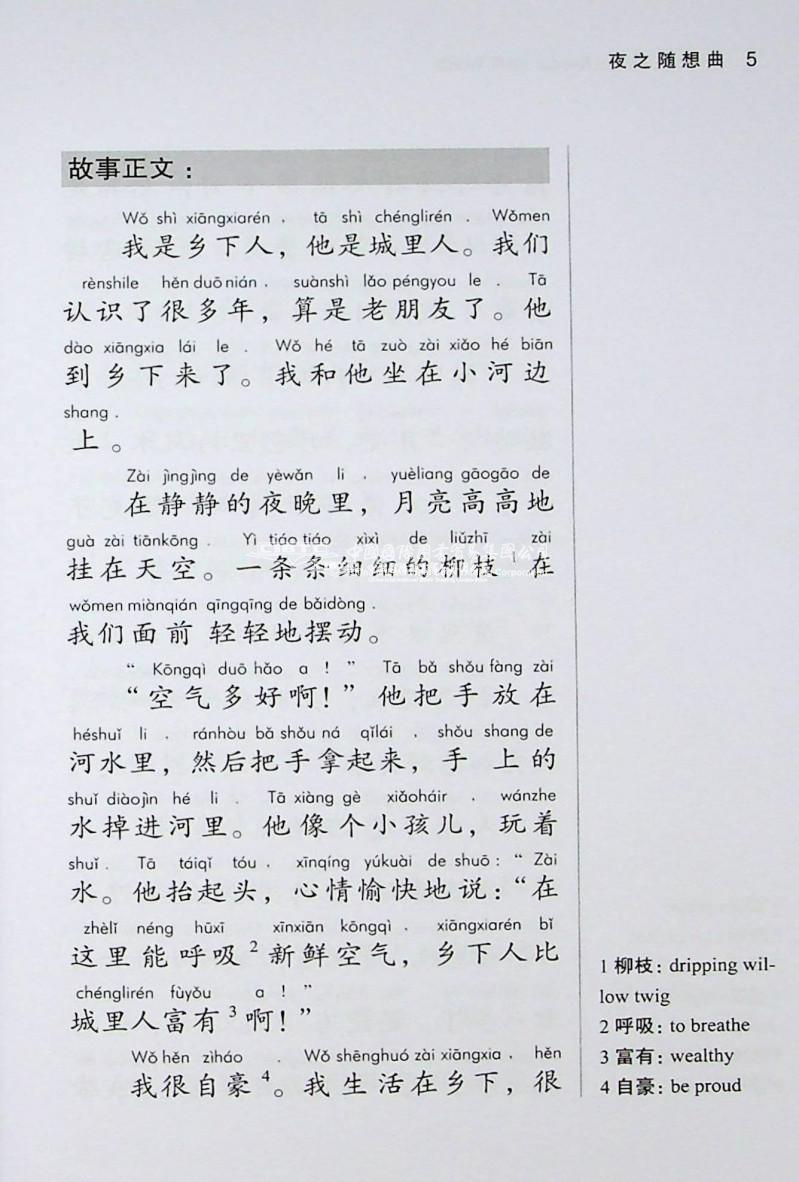 夜之随想曲 5
故事正文：
Wǒ shì xiāngxiarén , tā shì chénglǐrén . Wǒmen
我是乡下人，他是城里人。我们
rènshile hěn duō nián , suànshì lǎo péngyou le . Tā
认识了很多年，算是老朋友了。他
dào xiāngxia lái le . Wǒ hé tā zuò zài xiǎo hé biān
到乡下来了。我和他坐在小河边
shang .
上。
Zài jìngjìng de yèwǎn li , yuèliang gāogāo de
在静静的夜晚里，月亮高高地
guà zài tiānkōng . Yì tiáo tiáo xìxì de liǔzhī zài
挂在天空。一条条细细的柳枝1在
wǒmen miànqián qīngqīng de bǎidòng .
我们面前 轻轻地摆动。
“ Kōngqì duō hǎo a ! ” Tā bǎ shǒu fàng zài
“空气多好啊！”他把手放在
héshuǐ li , ránhòu bǎ shǒu ná qǐlái , shǒu shang de
河水里，然后把手拿起来，手 上的
shuǐ diàojìn hé li . Tā xiàng gè xiǎoháir , wánzhe
水掉进河里。他像个小孩儿，玩着
shuǐ . Tā táiqǐ tóu , xīnqíng yúkuài de shuō : “ Zài
水。他抬起头，心情愉快地说：“在
zhèlǐ néng hūxī xīnxiān kōngqì , xiāngxiarén bǐ
这里能呼吸2新鲜空气，乡下人比
chénglirén fùyǒu a ! ”
城里人富有3啊！”
Wǒ hěn zìháo . Wǒ shēnghuó zài xiāngxia , hěn
我很自豪4。我 生活在乡下，很
1 柳枝: dripping wil-
low twig
2 呼吸: to breathe
3 富有: wealthy
4 自豪: be proud